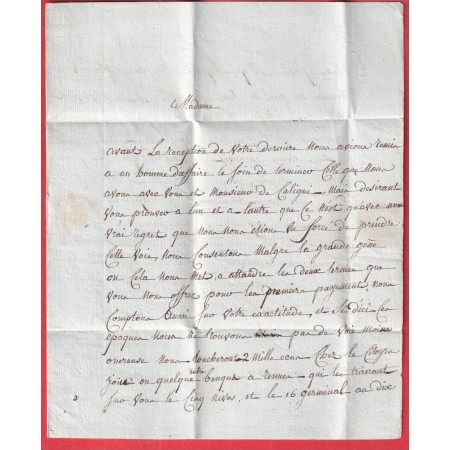 Madame
avant La reception de votre derniere Nous avions remis
a un homme daffaire le soin de terminer Celle que Nous
avons avec vous et Monsieur de Caligni. Mais desirant
vous prouver a lun et a lautre que Ce Nest quavec
vrai regret que nous nous etions vu force de prendre
Cette voie, nous Consentons Malgre la grande gêne
ou Cela nous Met, a attandre les deux termes que
vous nous offrez pour les premiers payement, nous
Comptons sur votre exactitude, et Si dici les
epoques Nous ne trouvons pas de voie moins
onereuse Nous toucherons 2 Mille ecus Chez le Citoyen
ou quelque autre banque a rennes qui les tireront
Sur vous le Cinq Nivos, et le 16 germinal au dix